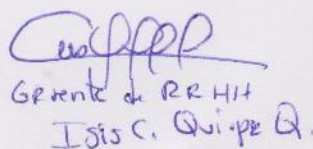 Gerente de RRHH
Isis C. Quispe Q.